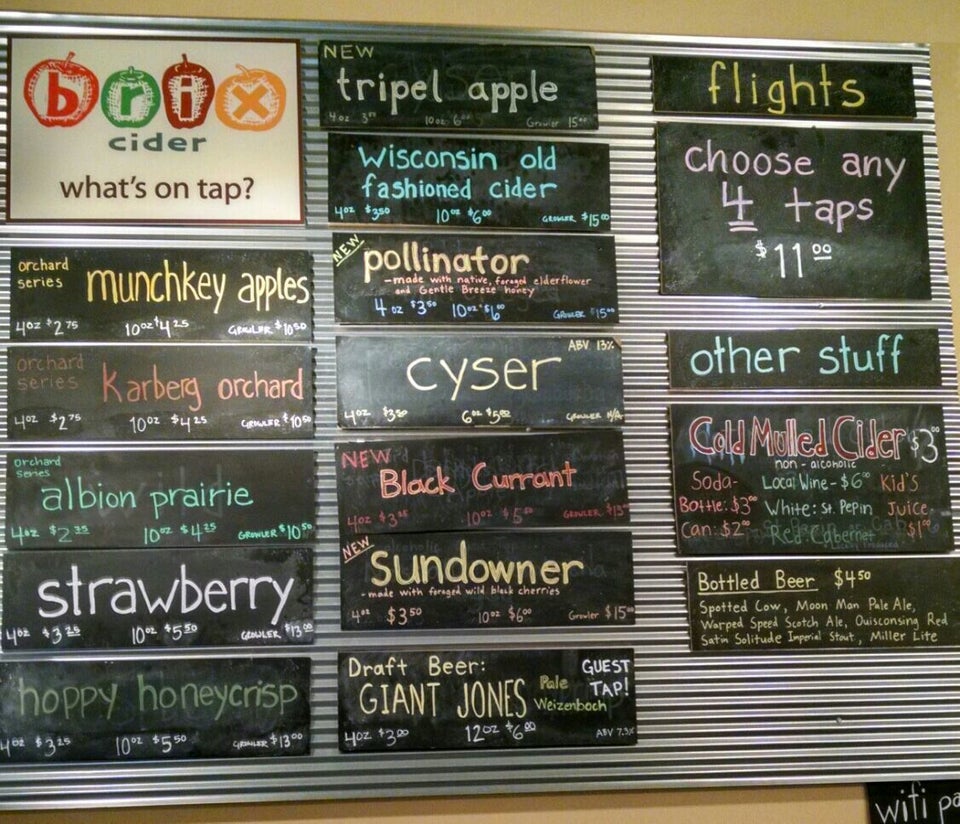 brix
cider
what's on tap?
orchard
series
munchkey apples
4oz $2.75
10oz $4.25
GROWLER $10.50
orchard
series
Karberg orchard
4oz $2.75
10oz $4.25
GROWLER $10.50
orchard
series
albion prairie
4oz
10oz $4.25
GROWLER $10.50
strawberry
4oz $3.25
10oz $5.50
GROWLER $13.00
hoppy honeycrisp
4oz $3.25
10oz $5.50
GROWLER $13.00
NEW
tripel apple
4oz
10oz 6
Growler 15
Wisconsin old
fashioned cider
4oz $3.50
10oz $6.00
GROWLER $15.00
NEW
pollinator
-made with native, foraged elderflower
and Gentle Breeze honey
4 oz $3.50
10oz $6.00
GROWLER $15.00
ABV 13%
cyser
4oz $3.50
6oz $5.00
GROWLER N/A
NEW
Black Currant
4oz
10oz
GROWLER
NEW
Sundowner
-made with foraged wild black cherries
4oz $3.50
10oz $6.00
Growler $15.00
Draft Beer:
GIANT JONES
Pale
Weizenboch
GUEST
TAP!
4oz $3.00
12oz $6.00
ABV 7.3%
flights
choose any
4 taps
$11.00
other stuff
Cold Mulled Cider $3.00
non-alcoholic
Soda-
Bottle: $3.00
Can: $2.00
Local Wine- $6.00
White: St. Pepin
Red: Cabernet
Kid's
Juice-
$1.00
Bottled Beer $4.50
Spotted Cow, Moon Man Pale Ale,
Warped Speed Scotch Ale, Ouisconsing Red
Satin Solitude Imperial Stout, Miller Lite
wifi pa